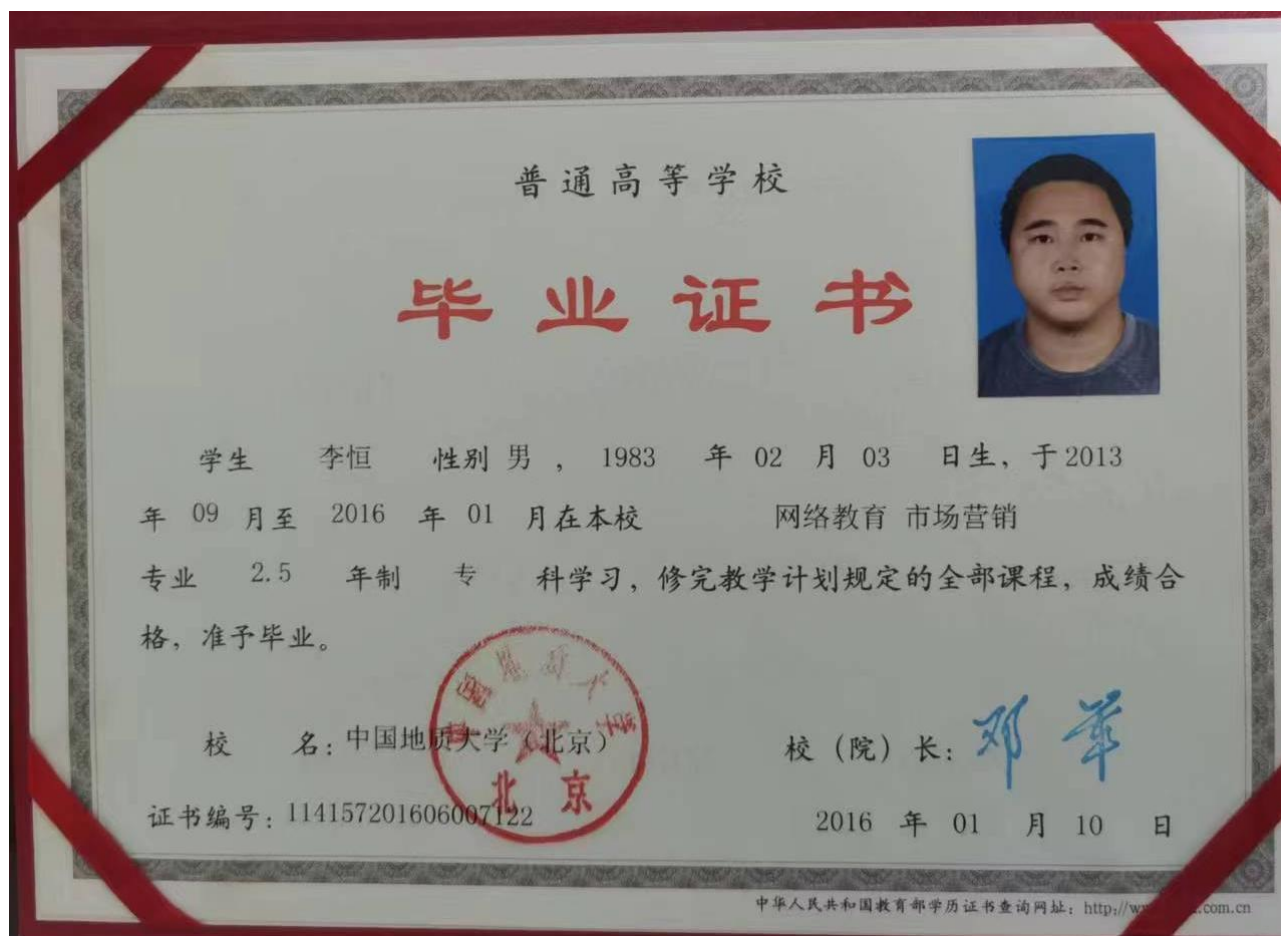 普通高等学校
毕业证书
学生 李恒 性别 男 , 1983 年 02 月 03 日生, 于2013
年 09 月至 2016 年 01 月在本校 网络教育 市场营销
专业 2.5 年制 专 科学习, 修完教学计划规定的全部课程, 成绩合
格, 准予毕业。
校 名: 中国地质大学 (北京)
北京
校 (院) 长: 邓军
证书编号: 114157201606007122
2016 年 01 月 10 日
中华人民共和国教育部学历证书查询网址: http://w .com.cn